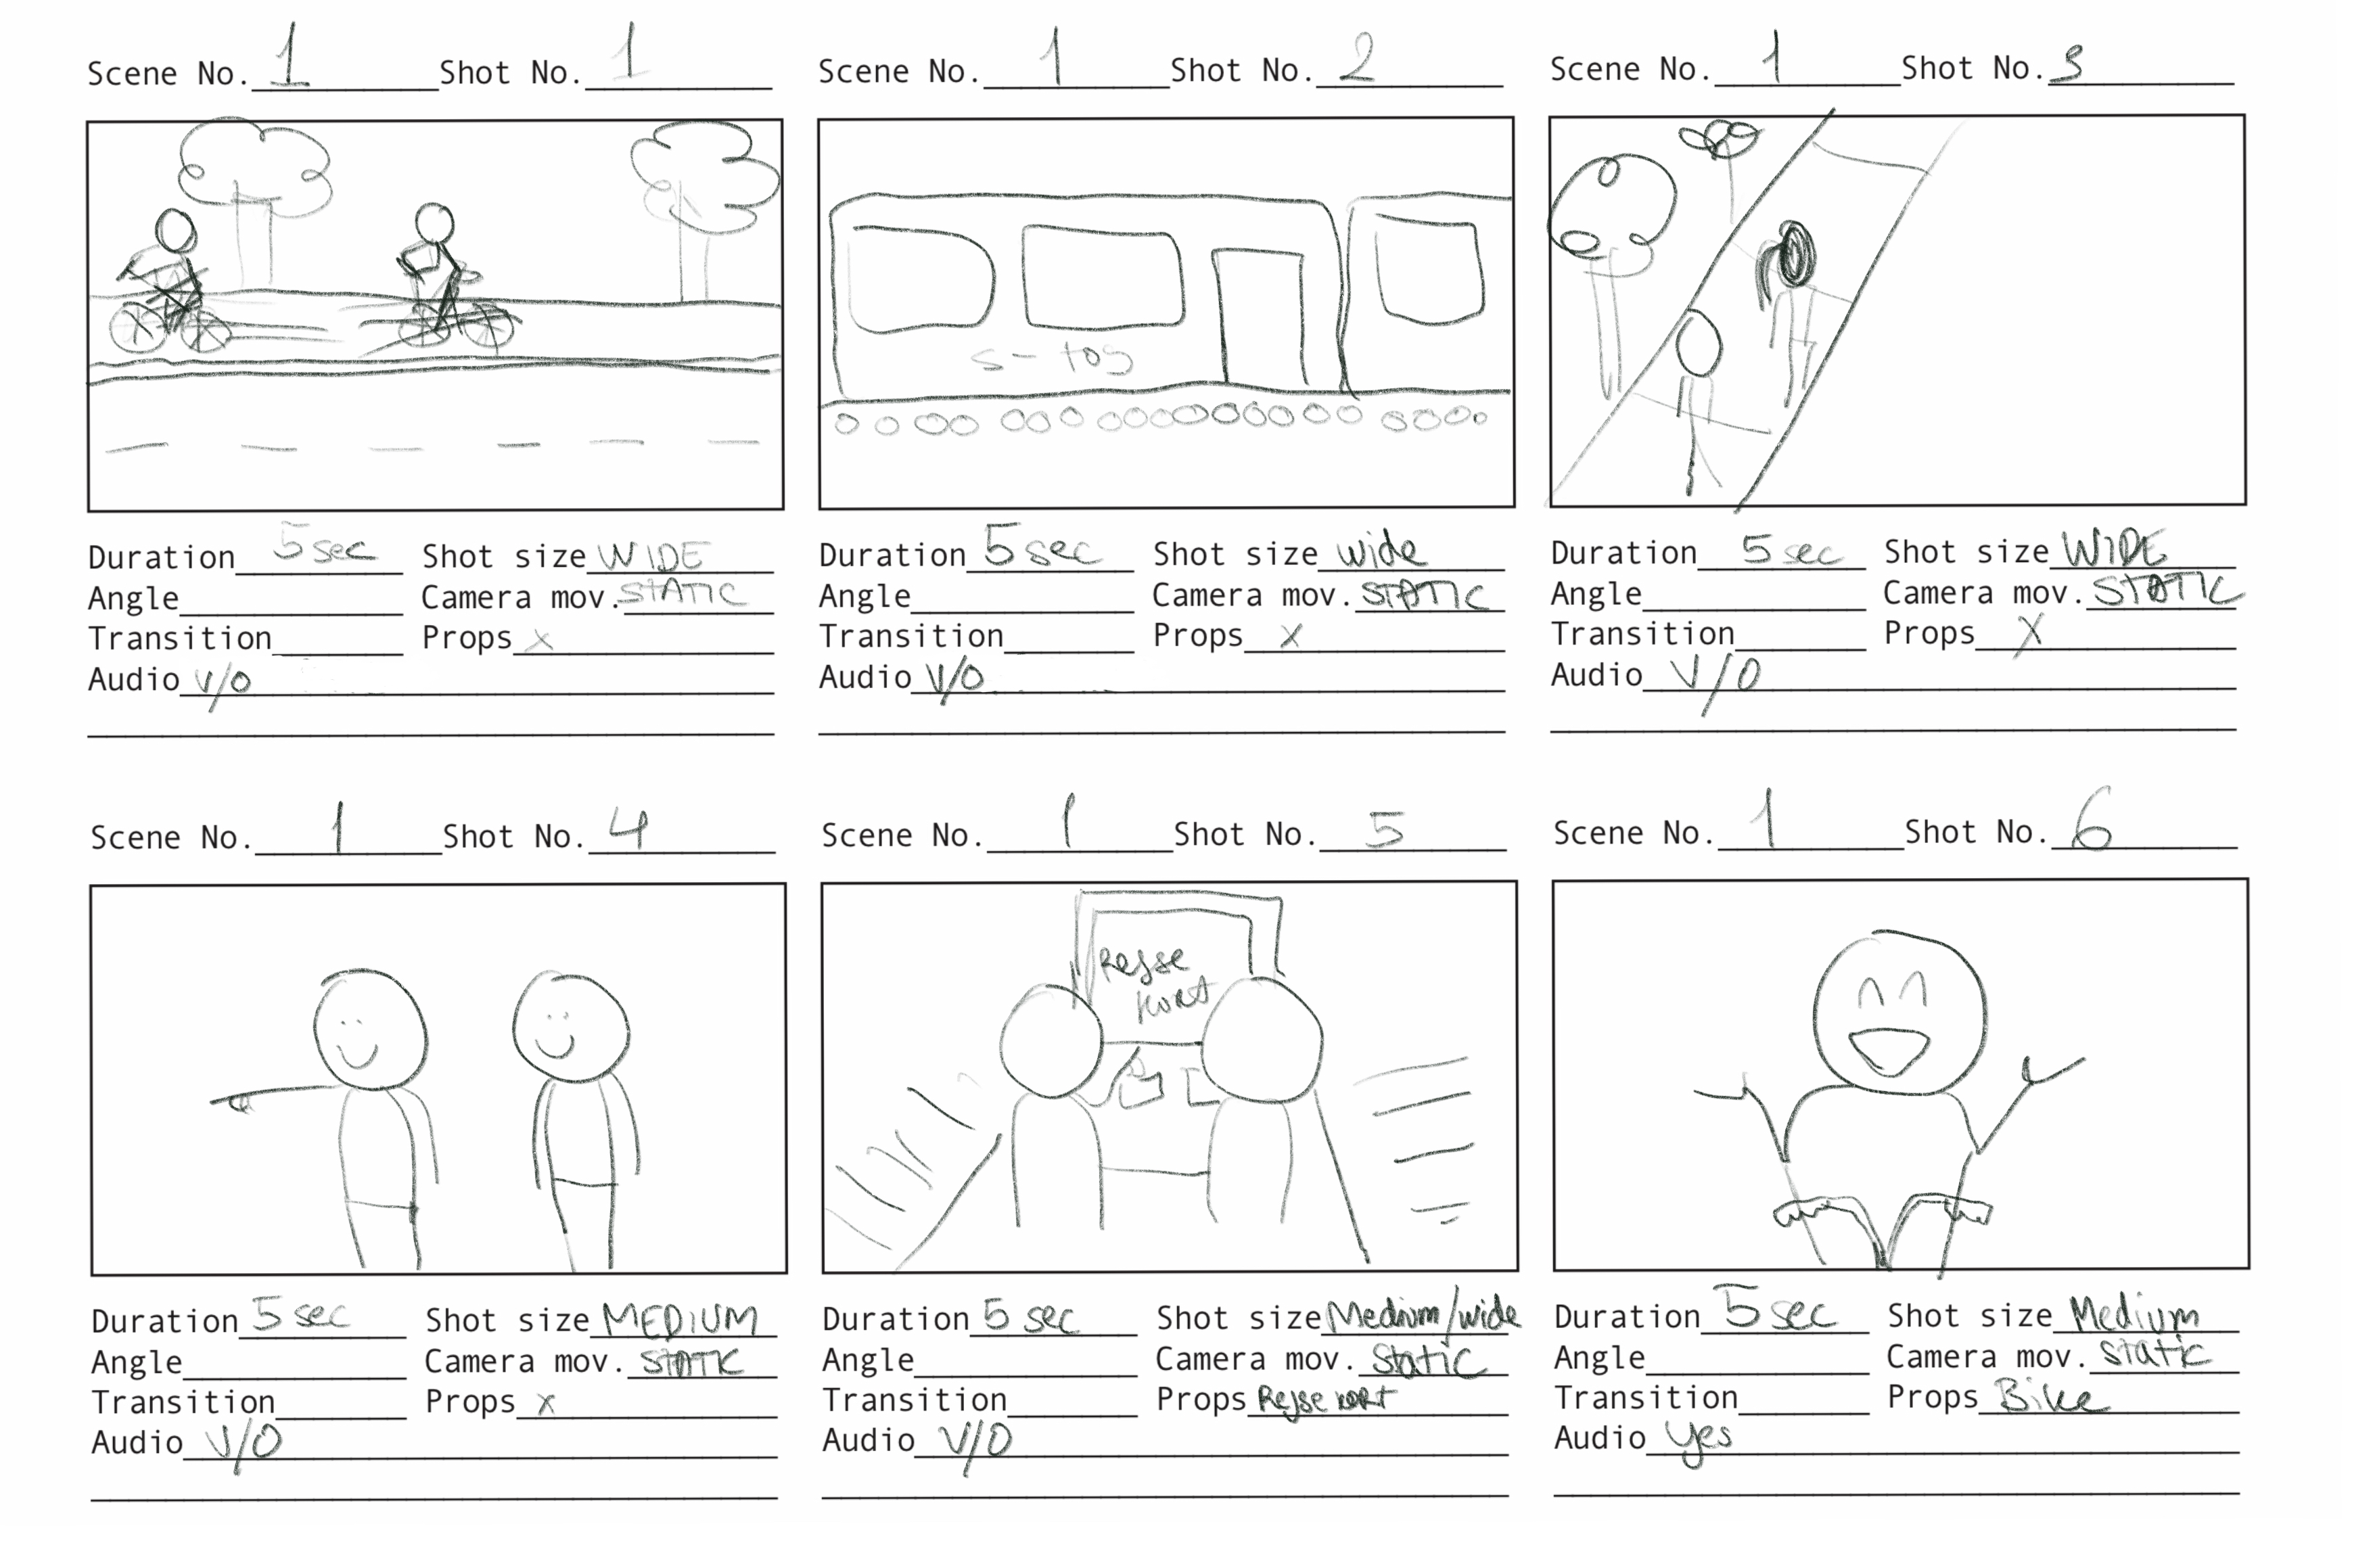 Scene No. 1 Shot No. 1
Duration 5 sec Shot size WIDE
Angle Camera mov. STATIC
Transition Props x
Audio V/O
Scene No. 1 Shot No. 2
s-tog
Duration 5 sec Shot size wide
Angle Camera mov. STATIC
Transition Props x
Audio V/O
Scene No. 1 Shot No. 3
Duration 5 sec Shot size WIDE
Angle Camera mov. STATIC
Transition Props X
Audio V/O
Scene No. 1 Shot No. 4
Duration 5 sec Shot size MEDIUM
Angle Camera mov. STATIC
Transition Props x
Audio V/O
Scene No. 1 Shot No. 5
Rejse
kort
Duration 5 sec Shot size Medium/wide
Angle Camera mov. Static
Transition Props Rejse kort
Audio V/O
Scene No. 1 Shot No. 6
Duration 5 sec Shot size Medium
Angle Camera mov. static
Transition Props Bike
Audio yes